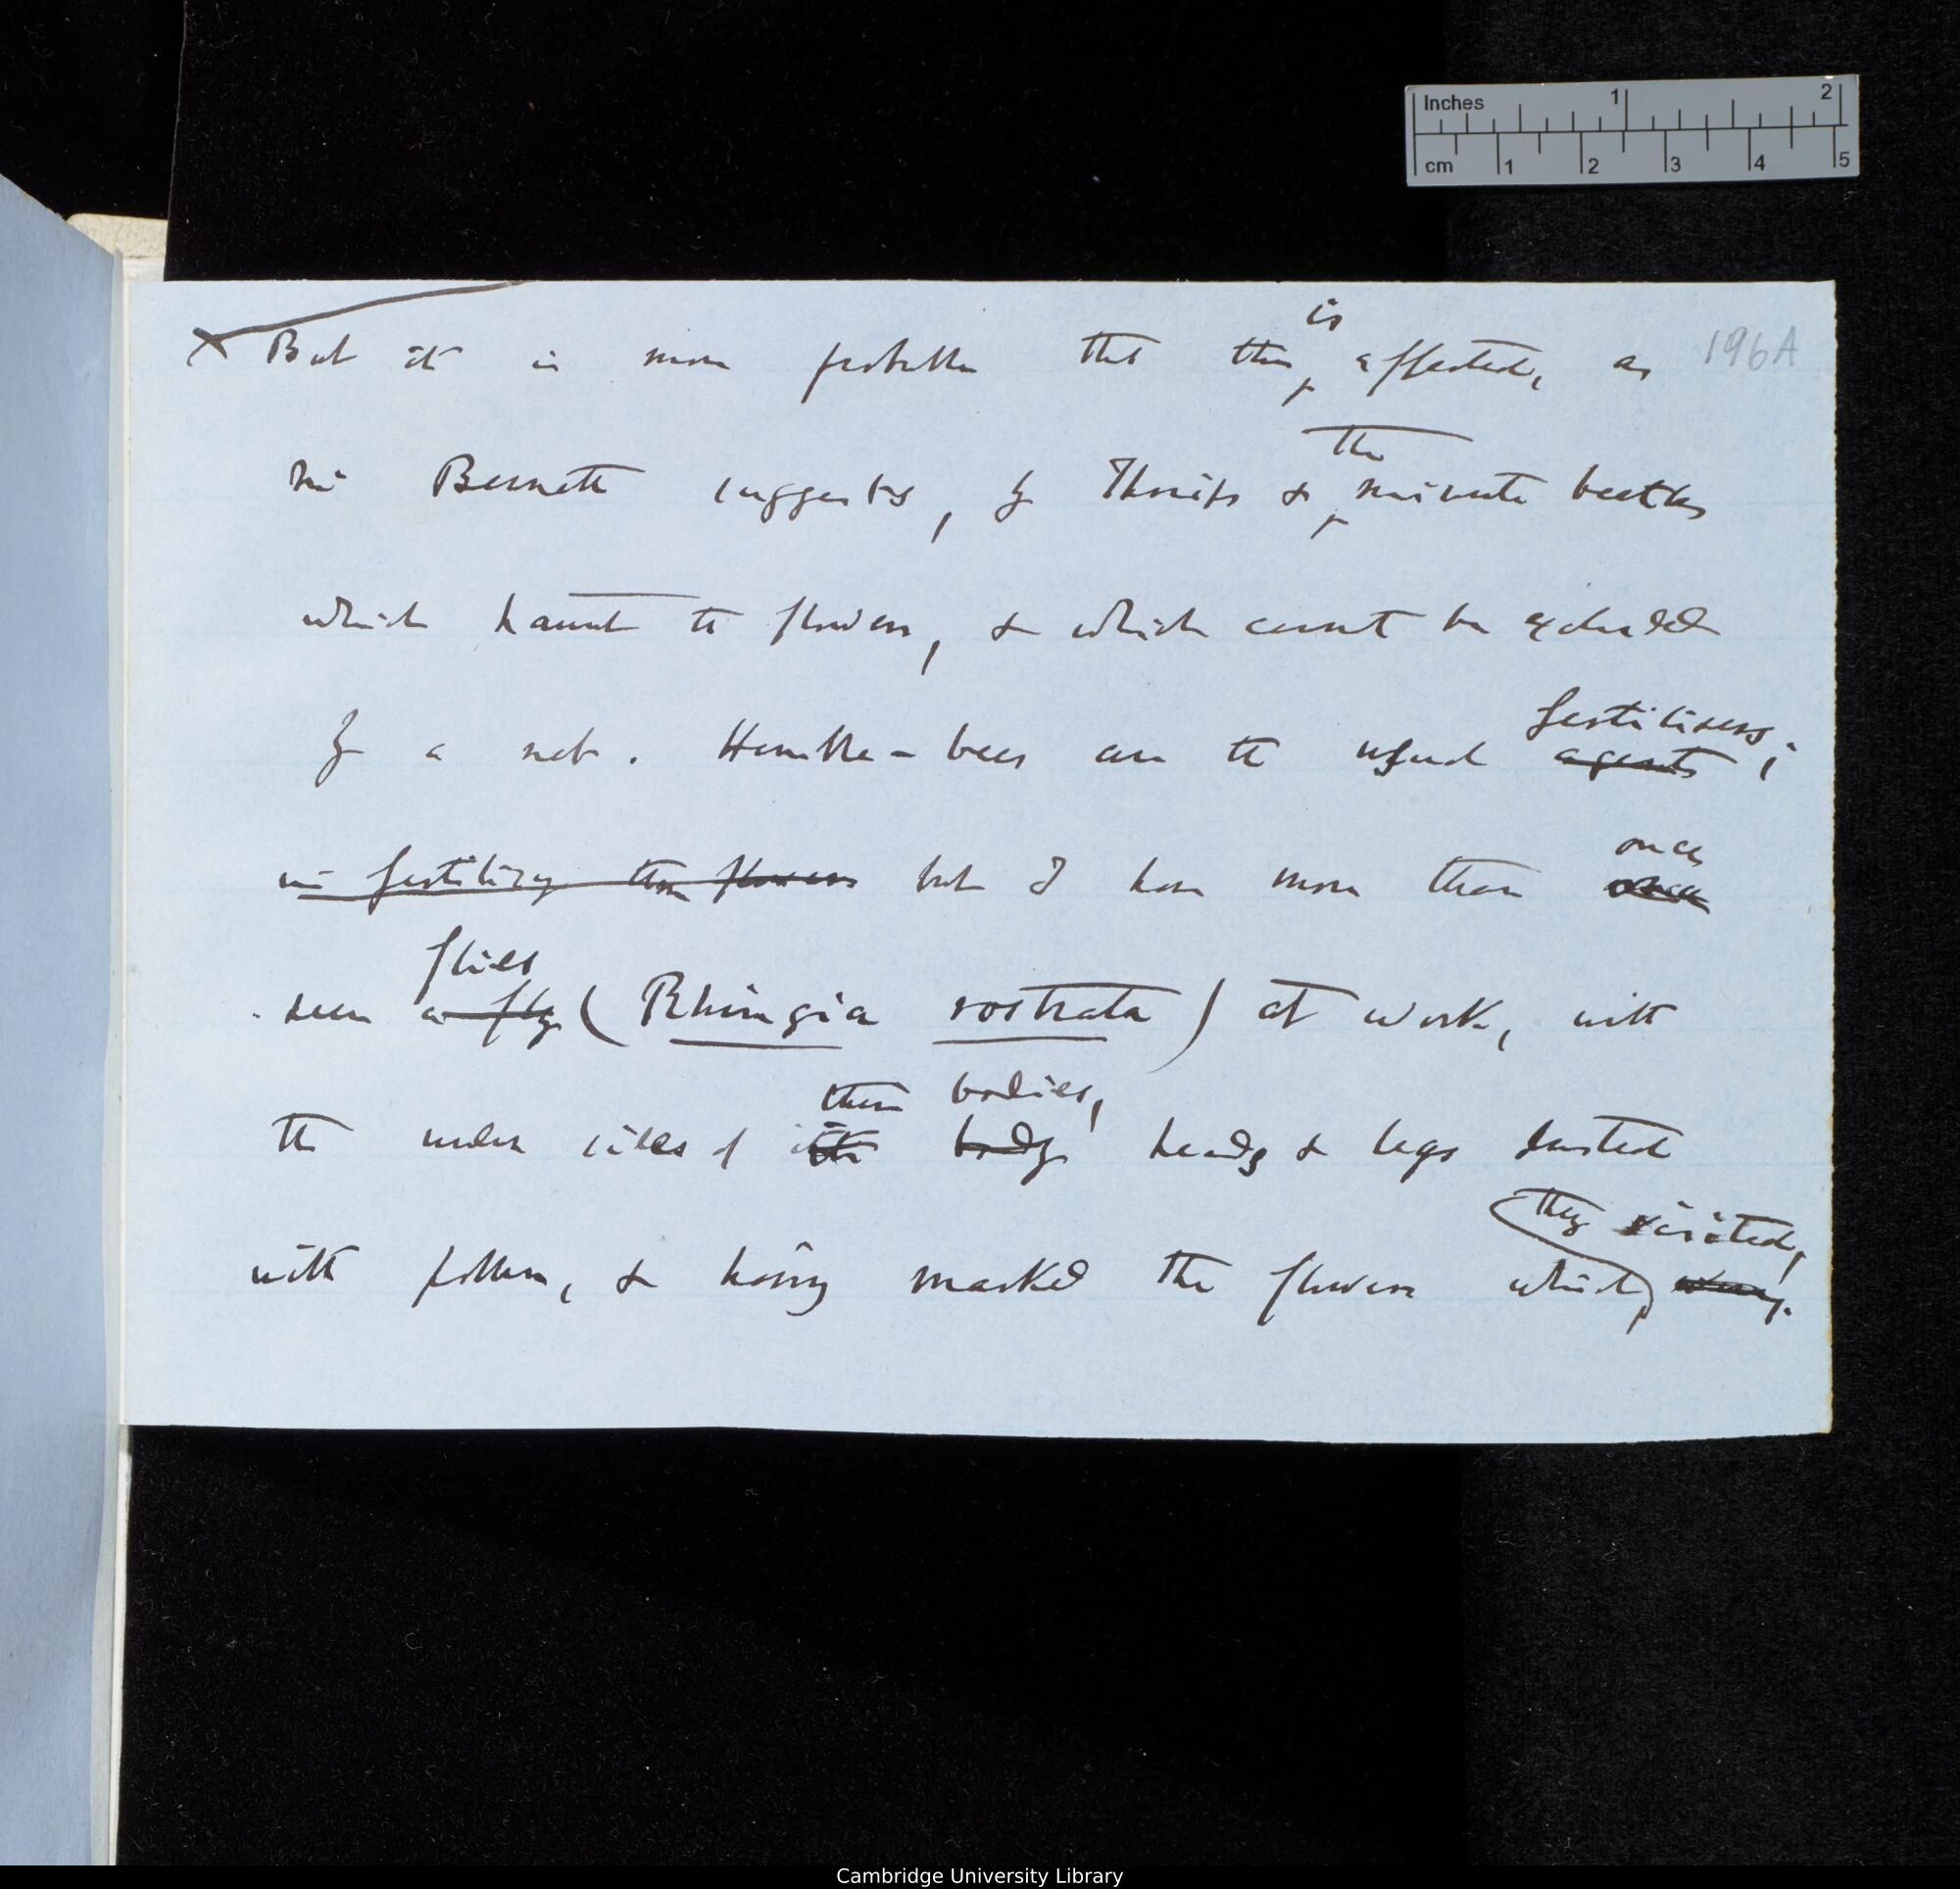 Inches 1 2
cm 1 2 3 4 5
196A
is
X But it is more probable that this affected, as
the
Mr Bennett suggests, by Thrips & minute beetles
which haunt the flowers, & which cannot be excluded
fertilisers;
by a net. Humble-bees are the usual agents
once
in fertilizing the flowers but I have more than once
flies
seen a fly (Rhingia rostrata) at work, with
their bodies,
the under sides of its body heads & legs dusted
they visited,
with pollen, & having marked the flowers which
Cambridge University Library